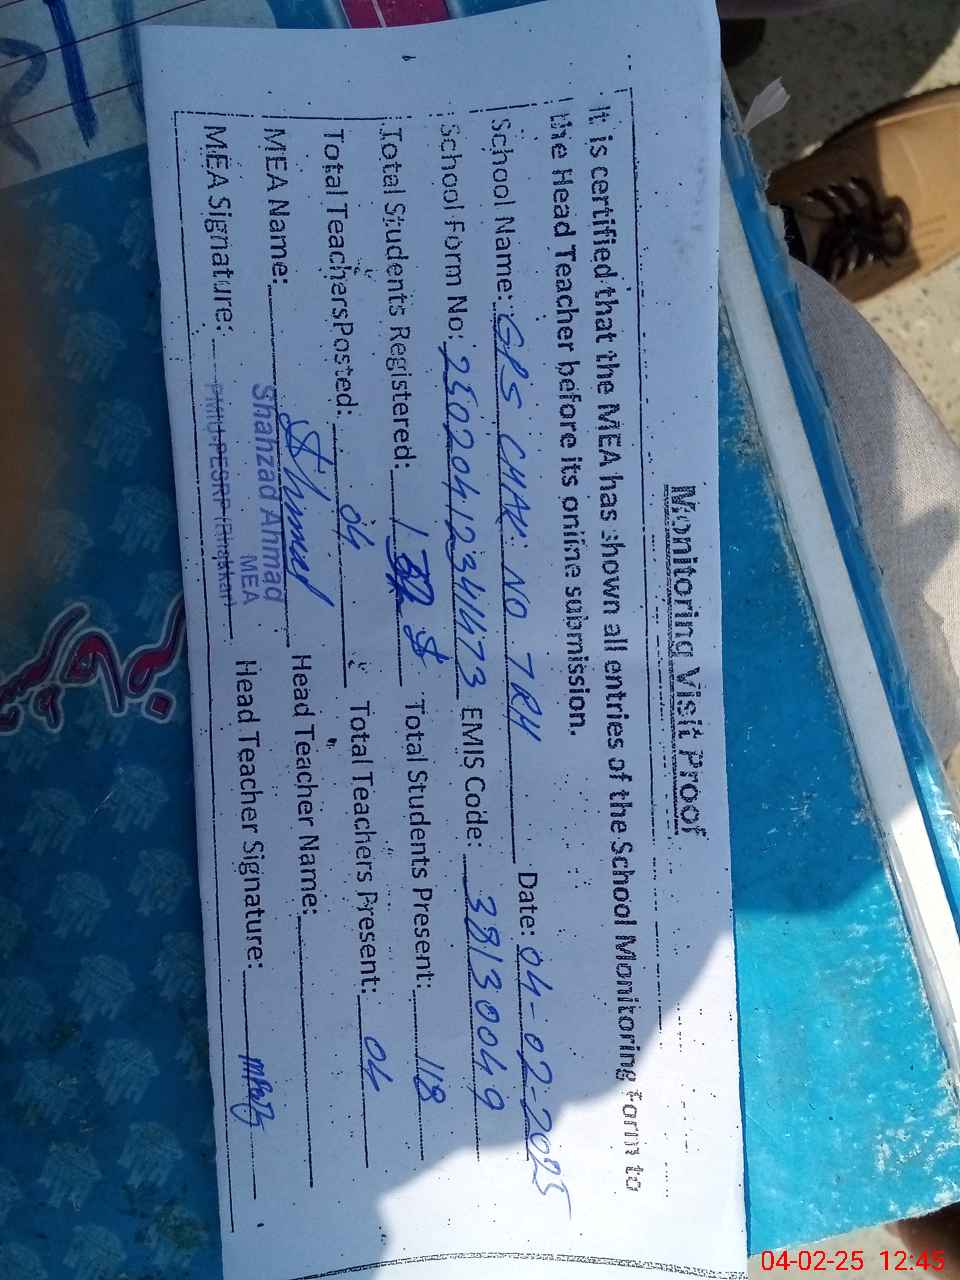 Monitoring Visit Proof
It is certified that the MEA has shown all entries of the School Monitoring form to
the Head Teacher before its online submission.
School Name: GPS CHAK NO 7 RH Date: 04-02-2025
School Form No: 2502041234473 EMIS Code: 38130049
Total Students Registered: Total Students Present: 118
Total Teachers Posted: 04 Total Teachers Present: 04
MEA Name: Head Teacher Name:
Shahzad Ahmad
MEA
PMIU-PESRP (Bhakkar)
MEA Signature: Head Teacher Signature:
04-02-25 12:45